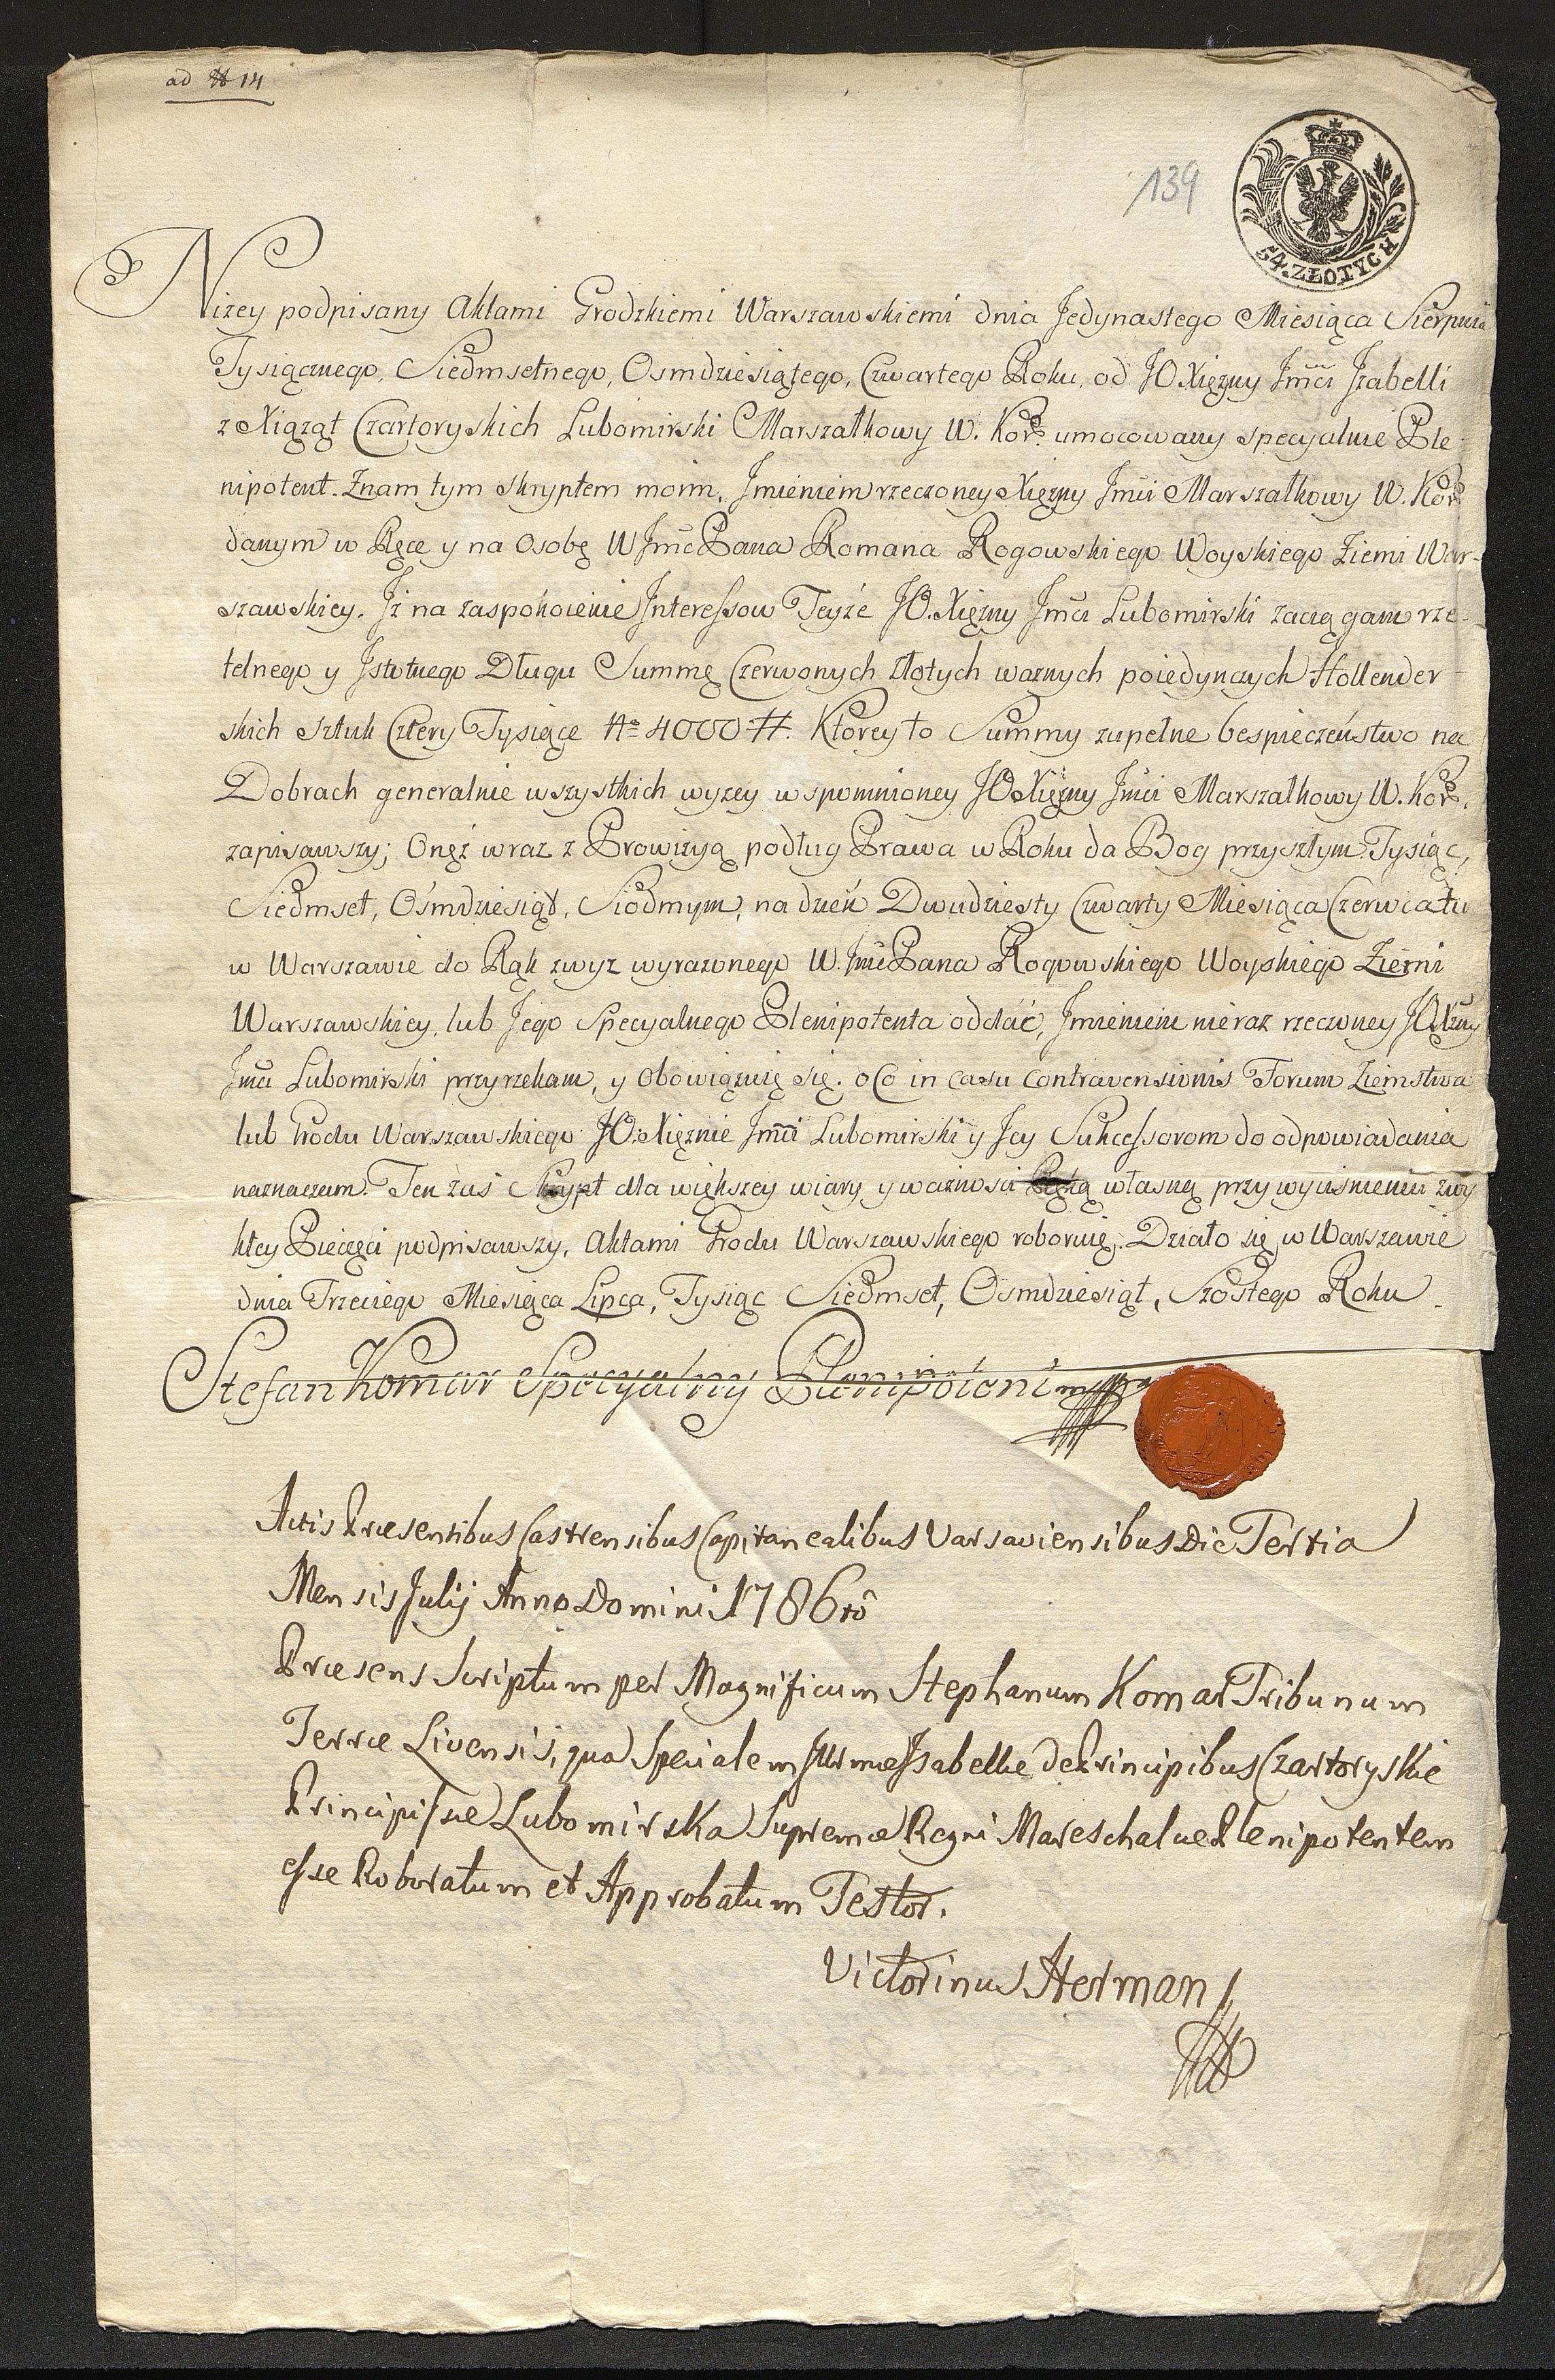 ad # 14
139
54. ZŁOTYCH
Niżey podpisany Aktami Grodzkiemi Warszawskiemi dnia Jedynastego Miesiąca Sierpnia
Tysiącznego, Siedmsetnego, Osmdziesiątego, Czwartego Roku, od JO Xięzny Jmći Jzabelli
z Xiąząt Czartoryskich Lubomirski Marszałkowy W. Kor: umocowany specyalnie Ple-
nipotent. Znam tym skryptem moim, Jmieniem rzeczoney Xięzny Jmći Marszałkowy W. Kor:
danym w Ręce y na Osobę W Jmć Pana Romana Rogowskiego Woyskiego Ziemi War-
szawskiey. Jz na zaspokoienie Jnteressow Teyże JO. Xięzny Jmći Lubomirski zaciągam rze-
telnego y Jstotnego Długu Summę Czerwonych złotych waznych poiedynczych Hollender-
skich sztuk Cztery Tysiące No 4000 #. Ktorey to Summy zupełne bespieczeństwo na
Dobrach generalnie wszystkich wyzey wspomnioney JO Xięzny Jmći Marszałkowy W. Kor:
zapisawszy; Onęż wraz z Prowizyą podług Prawa w Roku da Bog przyszłym Tysiąc,
Siedmset, Ośmdziesiąt, Siodmym, na dzień Dwudziesty Czwarty Miesiąca Czerwca tu
w Warszawie do Rąk zwyz wyrazonego W. Jmć Pana Rogowskiego Woyskiego Ziemi
Warszawskiey, lub Jego Specyalnego Plenipotenta oddać, Jmieniem nieraz rzeczoney JO Xżny
Jmći Lubomirski przyrzekam, y obowiązuię się. o Co in casu contravensionis Forum Ziemstwa
lub Grodu Warszawskiego JO. Xięznie Jmći Lubomirski y Jey Sukcessorom do odpowiadania
naznaczam. Ten zaś Skrypt dla większey wiary y ważności Ręką własną przy wyciśnieniu zwy
kłey Pieczęci podpisawszy, Aktami Grodu Warszawskiego roboruię. Działo się w Warszawie
dnia Trzeciego Miesiąca Lipca, Tysiąc Siedmset, Osmdziesiąt, Szostego Roku
Stefan Komar Specyalny Plenipotent mpp
Actis Præsentibus Castrensibus Capitanealibus Varsaviensibus Die Tertia
Mensis Julij Anno Domini 1786to
Præsens Scriptum per Magnificum Stephanum Komar Tribunum
Terræ Livensis, qua Specialem Jllrmæ Jsabellæ de Principibus Czartoryskie
Principissæ Lubomirska Supremæ Regni Mareschalcæ Plenipotentem
esse Roboratum et Approbatum Testor.
Victorinus Herman